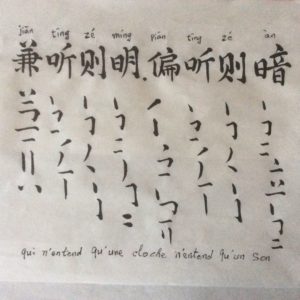 jiān tīng zé míng piān tīng zé àn
兼听则明.偏听则暗
qui n'entend qu'une cloche n'entend qu'un son